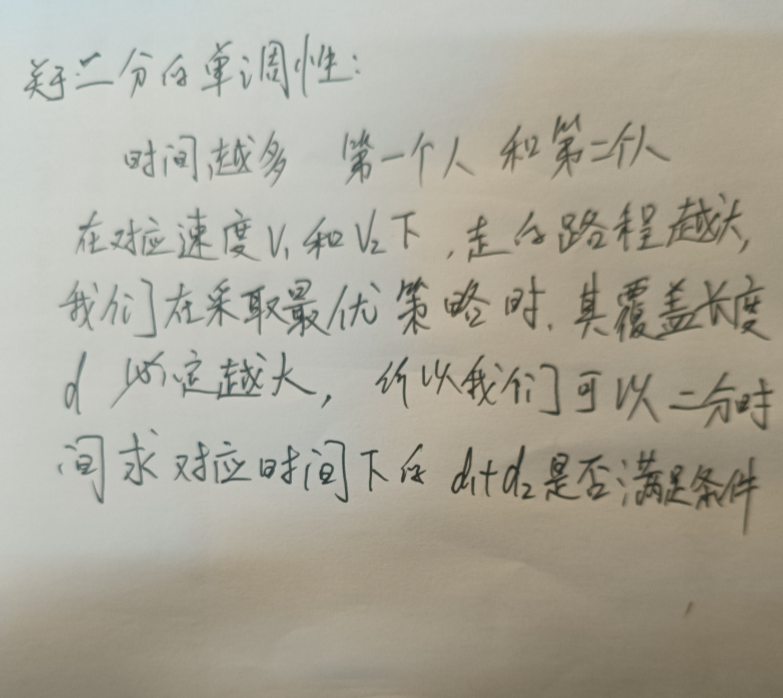 关于二分的单调性:
时间越多 第一个人 和第二个人
在对应速度V₁和V₂下,走的路程越大,
我们在采取最优策略时,其覆盖长度
d 必定越大, 所以我们可以二分时
间求对应时间下的 d₁+d₂是否满足条件